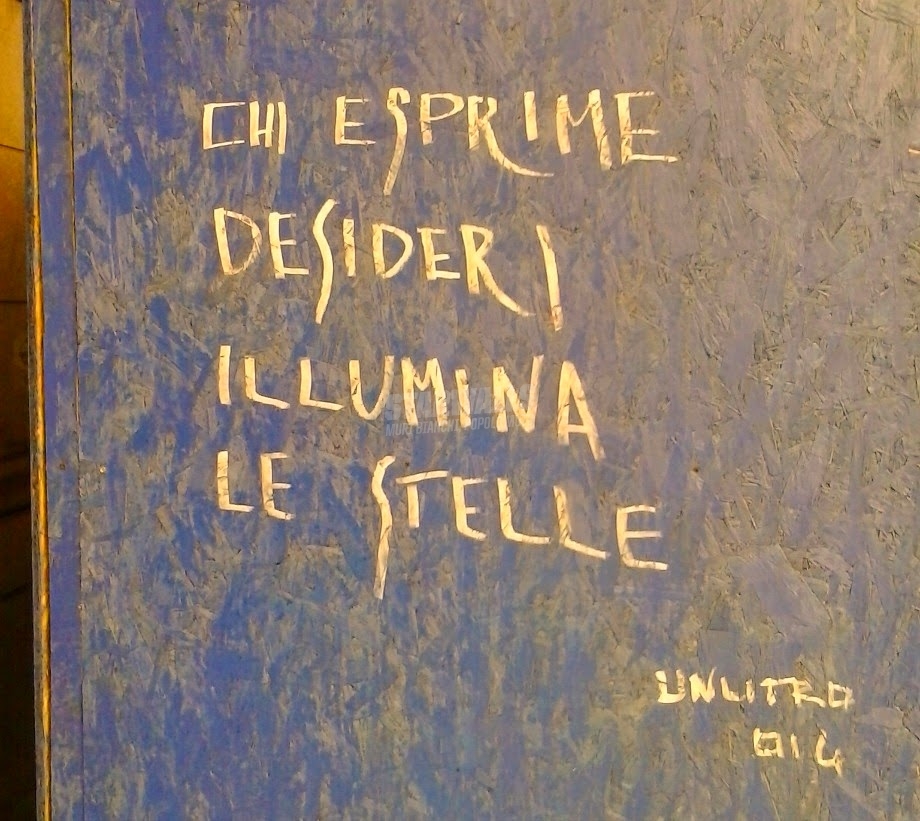 CHI ESPRIME
DESIDERI
ILLUMINA
LE STELLE
UNLITRO
014